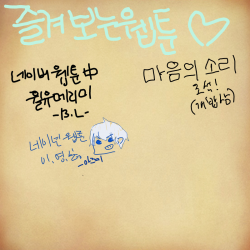 즐겨보는웹툰 ♡
네이버 웹툰 中
윌유메리미
-B.L-
마음의 소리
조석!
(개밥상)
네이버 웹툰
이.영.싫